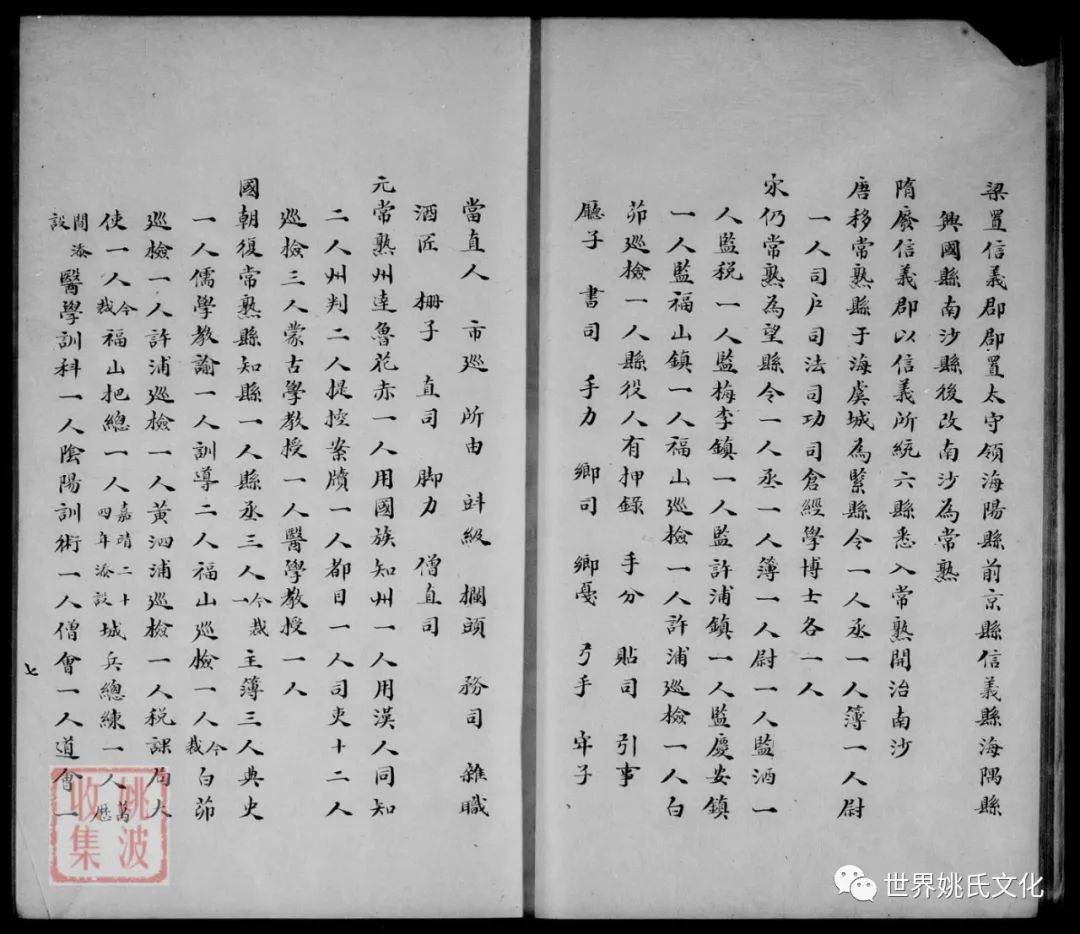 梁置信義郡郡置太守領海陽縣前京縣信義縣海隅縣
興國縣南沙縣後改南沙為常熟
隋廢信義郡以信義所統六縣悉入常熟開治南沙
唐移常熟縣于海虞城為緊縣令一人丞一人簿一人尉
一人司戶司法司功司倉經學博士各一人
宋仍常熟為望縣令一人丞一人簿一人尉一人監酒一
人監稅一人監梅李鎮一人監許浦鎮一人監慶安鎮
一人監福山鎮一人福山巡檢一人許浦巡檢一人白
茆巡檢一人縣役人有押錄 手分 貼司 引事
廳子 書司 手力 鄉司 鄉戛 弓手 牢子
當直人 市巡 所由 斛級 攔頭 務司 雜職
酒匠 柵子 直司 脚力 僧直司
元常熟州達魯花赤一人用國族知州一人用漢人同知
二人州判二人提控案牘一人都目一人司吏十二人
巡檢三人蒙古學教授一人醫學教授一人
國朝復常熟縣知縣一人縣丞三人今裁一主簿三人典史
一人儒學教諭一人訓導二人福山巡檢一人今裁白茆
巡檢一人許浦巡檢一人黃泗浦巡檢一人稅課局大
使一人今裁福山把總一人嘉靖二十四年添設城兵總練一人萬曆
間添設醫學訓科一人陰陽訓術一人僧會一人道會一
七
姚波
收集
世界姚氏文化